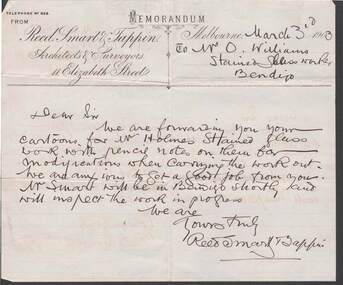 TELEPHONE No 968
MEMORANDUM
FROM
Reed, Smart & Tappin
Architects & Surveyors
11 Elizabeth Street
Melbourne, March 3rd 1903
To Mr O. Williams
Stained Glass works
Bendigo
Dear Sir
We are forwarding you your
cartoons for Mr Holmes Stained Glass
work with pencil notes on them for
modifications when carrying the work out.
We are anxious to get a good job from you.
Mr Smart will be in Bendigo shortly and
will inspect the work in progress
We are
Yours truly
Reed Smart & Tappin